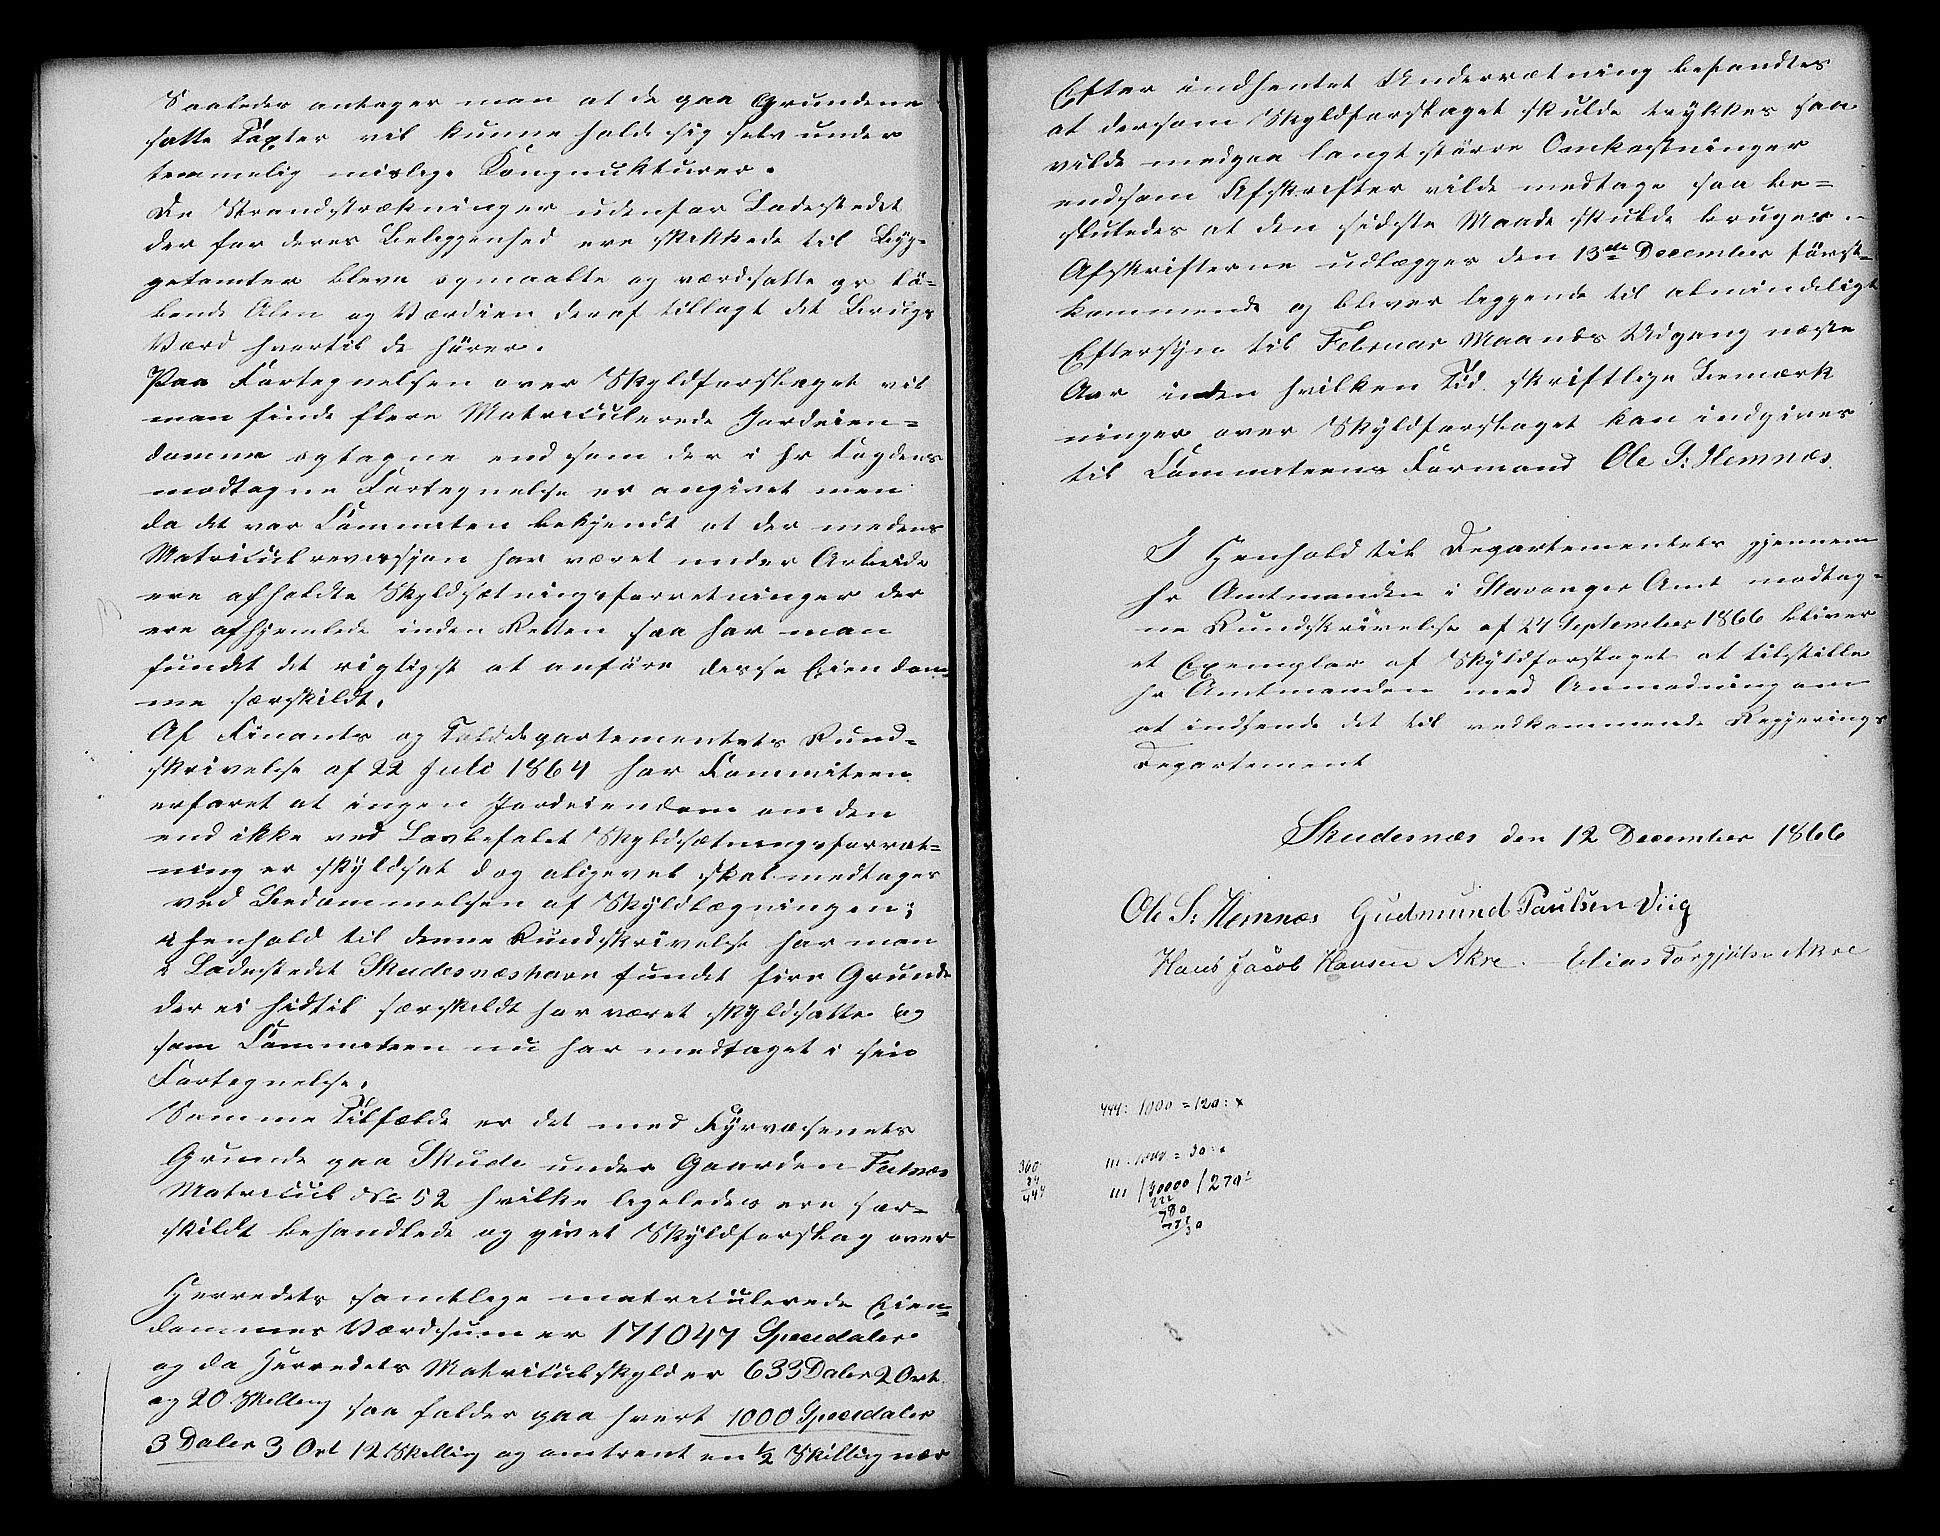 Saaledes antager man at de paa Grundene
satte Taxter vil kunne holde sig selv under
temmelig mislige Konjunkturer.
De Strandstrækninger udenfor Ladestedet
der for deres Beliggenhed ere skikkede til Byg-
getomter bleve opmaalte og værdsatte pr lö-
bende Alen og Værdien deraf tillagt det Brugs
Værd hvortil de hörer.
Paa Fortegnelsen over Skyldforslaget vil
man finde flere Matriculerede Jordeien-
domme optagne end som der i hr Fogdens
modtagne Fortegnelse er angivet men
da det var Commiteen bekjendt at der medens
Matriculrevisjon har været under Arbeide
ere afholdte Skyldsætningsforretninger der
ere afhjemlede inden Retten saa har man
fundet det rigtigst at anföre disse Eiendom-
me særskildt.
Af Finants og Tolddepartementets Rund-
skrivelse af 22 Juli 1864 har Commiteen
erfaret at ingen Jordeiendom om den
end ikke ved Lovbefalet Skyldsætningsforret-
ning er skyldsat dog aligevel skal medtages
ved Bedömmelsen af Skyldlægningen;
i henhold til denne Rundskrivelse har man
i Ladestedet Skudesnæshavn fundet fire Grunde
der ei hidtil særskildt har været skyldsatte og
som Commiteen nu har medtaget i sin
Fortegnelse.
Samme Tilfælde er det med Fyrvæsenets
Grunde paa Skude under Gaarden Falnæs
Matricul No 52 hvilke ligeledes ere sær-
skildt behandlede og givet Skyldforslag over
Herredets samtlige matriculerede Eien-
dommes Værdsum er 171047 Speciedaler
og da Herredets Matriculskyld er 633 Daler 2 Ort
og 20 Skilling saa falder paa hvert 1000 Speciedaler
3 Daler 3 Ort 12 Skilling og omtrent en ½ Skilling nær
Efter indhentet Underretning befandtes
at dersom Skyldforslaget skulde trykkes saa
vilde medgaa langt större Omkostninger
endsom Afskrifter vilde medtage saa be-
sluttedes at den sidste Maade skulde bruges.
Afskrifterne udlægges den 13de December först-
kommende og bliver liggende til almindeligt
Eftersyn til Februar Maaneds Udgang næste
Aar inden hvilken Tid skriftlige Bemærk
ninger over Skyldforslaget kan indgives
til Commiteens Formand Ole S: Hemnæs.
I Henhold til Departementets gjennem
hr Amtmanden i Stavanger Amt modtag-
ne Rundskrivelse af 27 September 1866 bliver
et Exemplar af Skyldforslaget at tilstille
hr Amtmanden med Anmodning om
at indsende det til vedkommende Regjerings
Departement
Skudesnæs den 12 December 1866
Ole S: Hemnæs Gudmund Paulsen Viig
Hans Jacob Hansen Akre. Elias Torgjulsen Akre
444: 1000 = 120: x
111: 1000 = 30: x
360
84
444
111 /30000 / 270
222
780
777
30